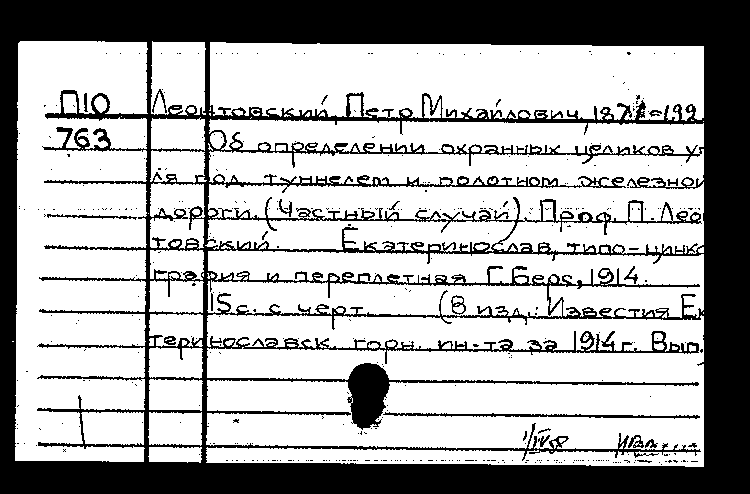 П10 Леонтовский, Петр Михайлович, 187
763 Об определении охранных целиков уг
ля под туннелем и полотном железной
дороги. (Частный случай). Проф. П. Лео
товский. Екатеринослав, типо-цинко
графия и переплетная Г. Берс, 1914.
15 с. с черт. (В изд.: Известия Ек
теринославск. горн. ин-та за 1914 г. Вып.
1/IV 58